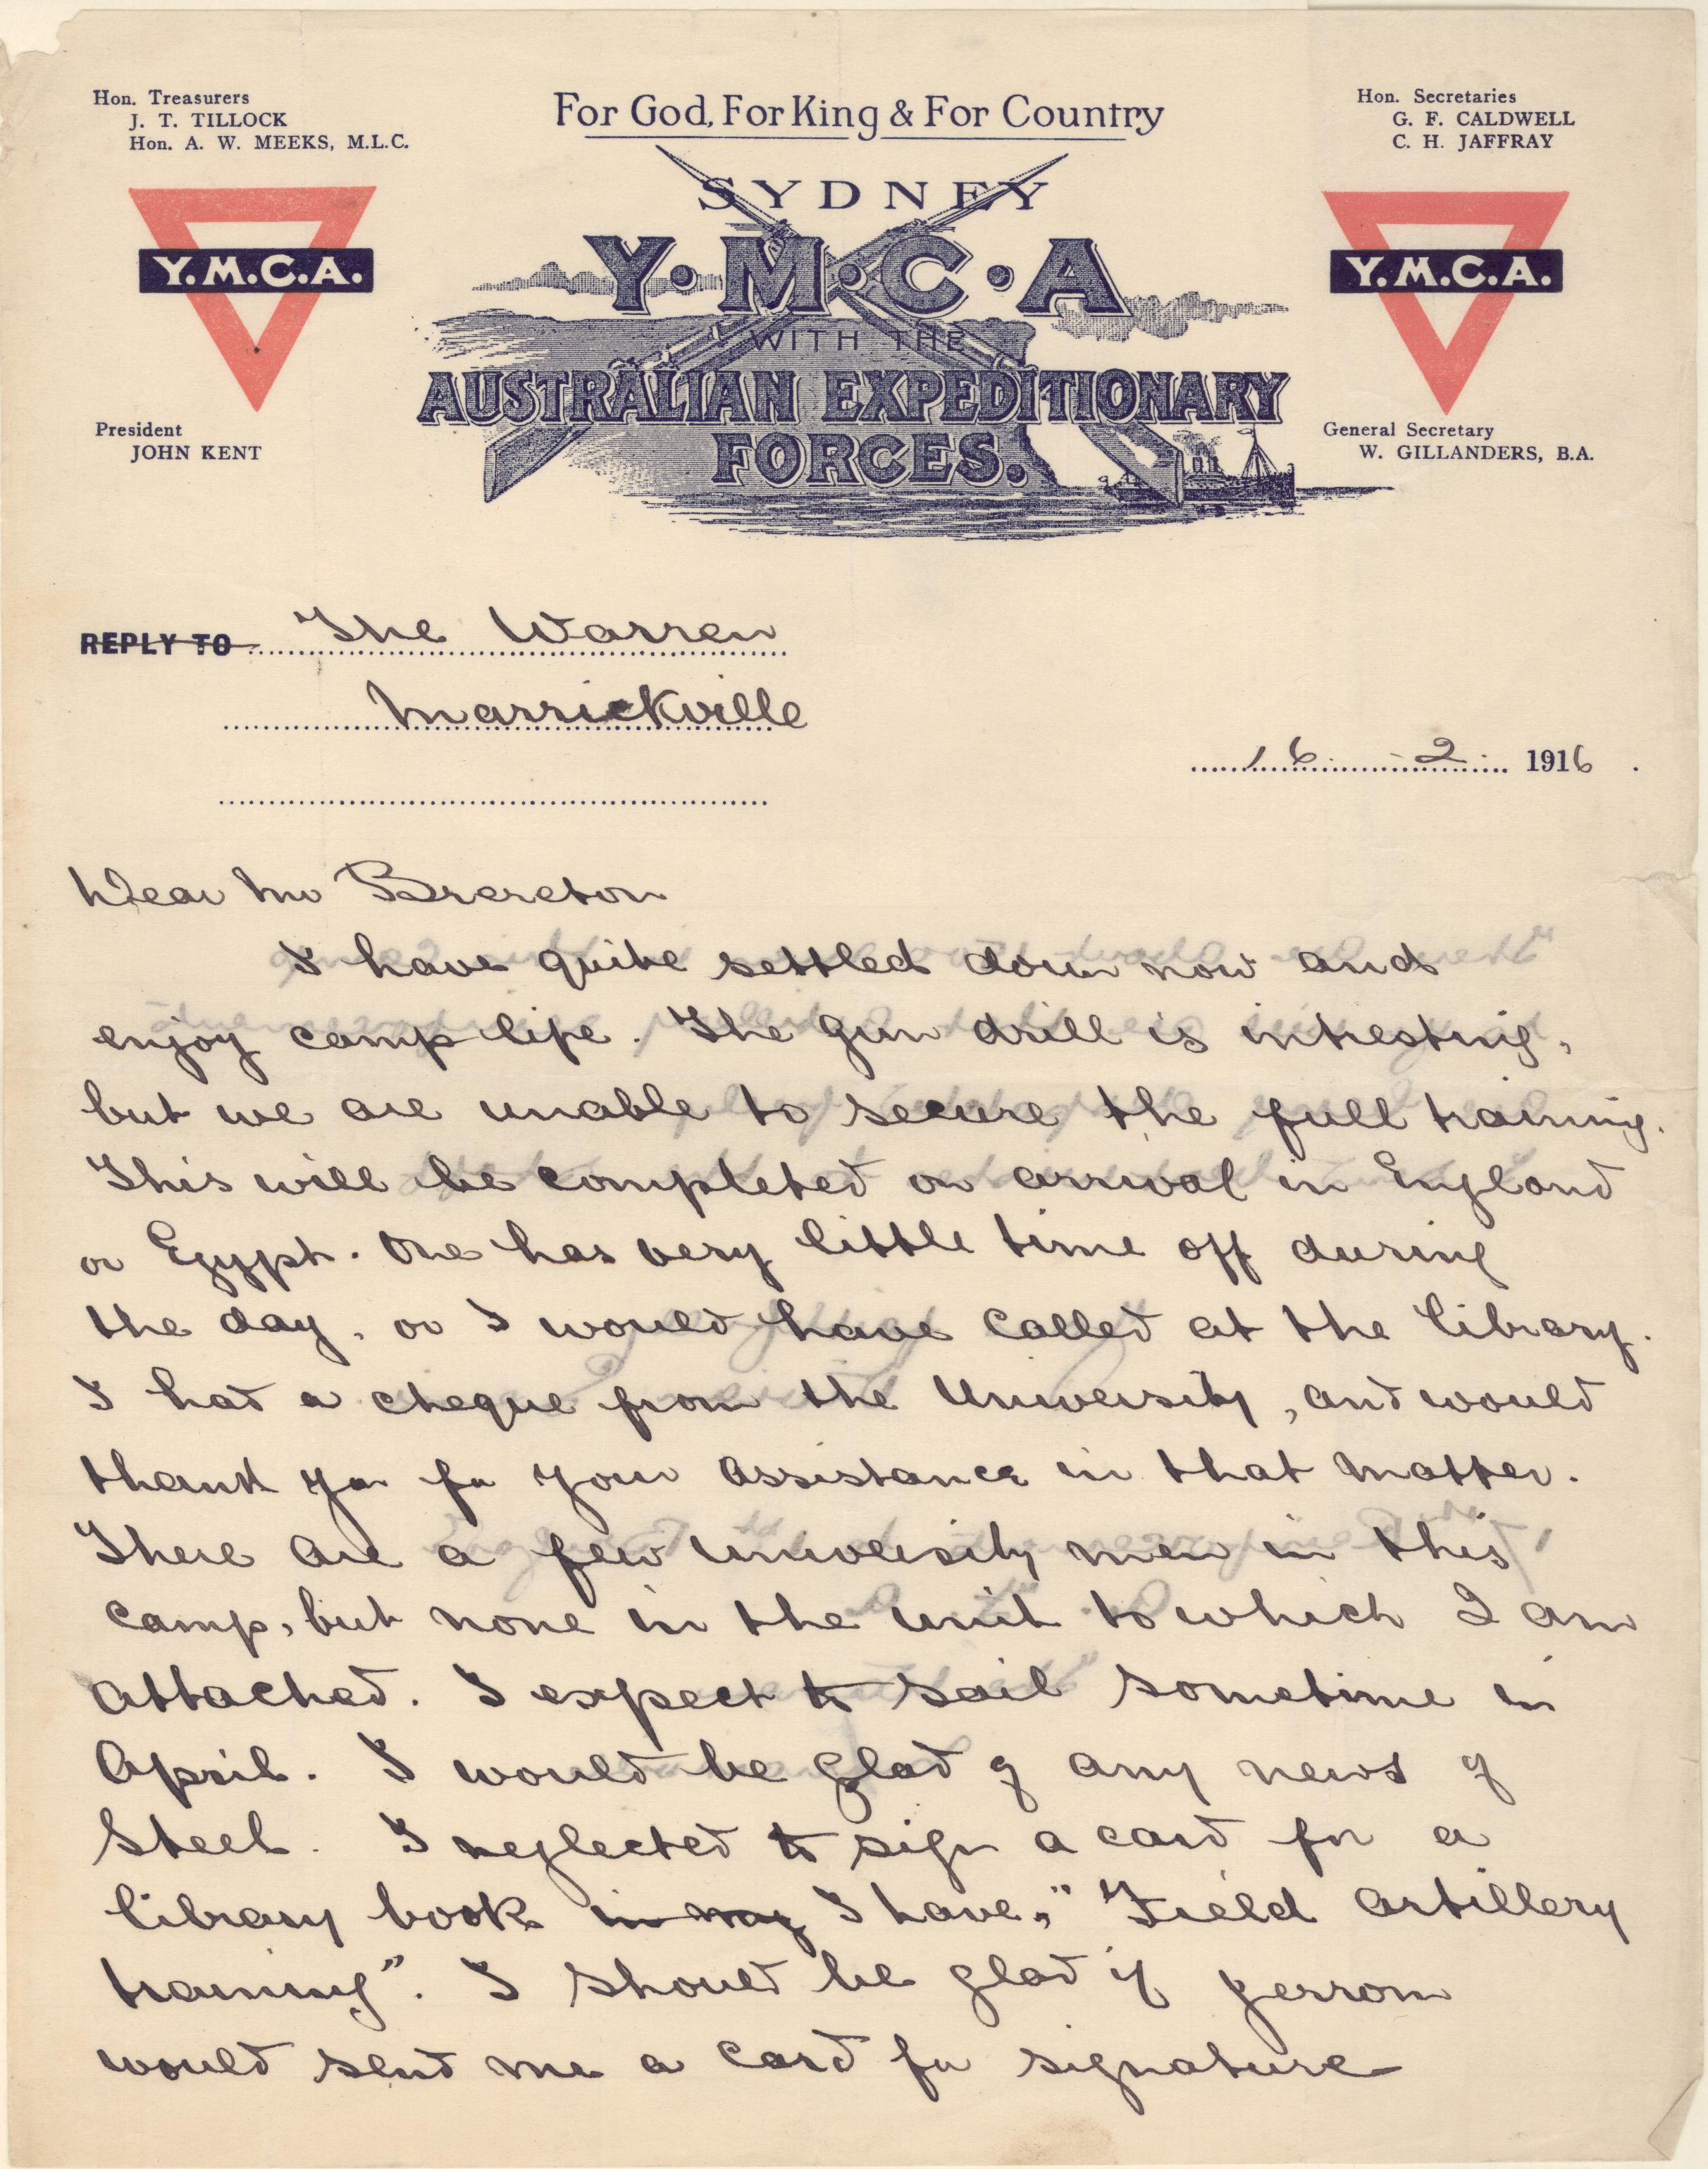 Hon. Treasurers
J. T. TILLOCK
Hon. A. W. MEEKS, M.L.C.
For God, For King & For Country
Hon. Secretaries
G. F. CALDWELL
C. H. JAFFRAY
SYDNEY
Y.M.C.A
WITH THE
AUSTRALIAN EXPEDITIONARY
FORCES.
Y.M.C.A.
Y.M.C.A.
President
JOHN KENT
General Secretary
W. GILLANDERS, B.A.
REPLY TO The Warren
Marrickville
16 - 2 - 1916.
Dear Mr Brereton
I have quite settled down now and
enjoy camp life. The gun drill is intresting,
but we are unable to secure the full training.
This will be completed on arrival in England
or Egypt. One has very little time off during
the day, or I would have called at the library.
I had a cheque from the University, and would
thank you for your assistance in that matter.
There are a few University men in this
camp, but none in the unit to which I am
attached. I expect to sail sometime in
April. I would be glad of any news of
Steel. I neglected to sign a card for a
library book in my I have, "Field Artillery
training". I should be glad if
would send me a card for signature